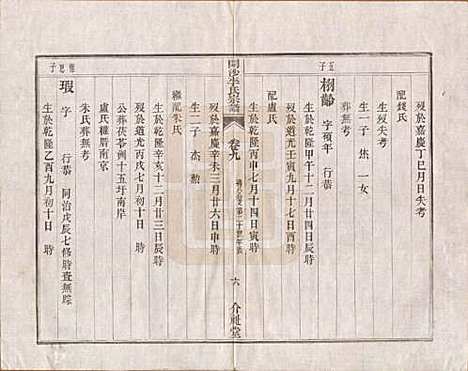 歿於嘉慶丁巳月日失考
配錢氏
生歿失考
生一子 焦 一女
葬無考
五子
栩齡 字頊年 行恭
生於乾隆甲午十二月廿四日辰時
歿於道光壬寅十一月十七日酉時
配盧氏
生於乾隆丙申七月十四日寅時
卷九
六 介祉堂
歿於嘉慶辛未三月廿六日申時
生二子 杰 勲
繼配朱氏
生於乾隆辛亥十二月廿三日辰時
歿於道光丙戌七月初十日 時
公葬茯苓洲十五圩南岸
盧氏權厝南京
朱氏葬無考
瑕 字 行恭 同治戊辰七修時查無踪
生於乾隆乙酉九月初十日 時